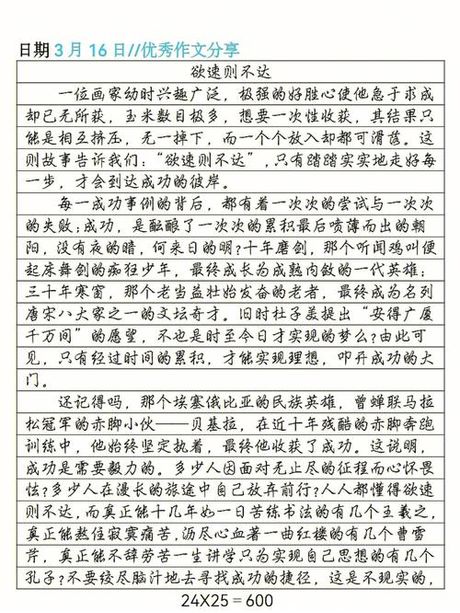 日期3月16日//优秀作文分享
欲速则不达
一位画家幼时兴趣广泛，极强的好胜心使他急于求成
却已无所获，玉米数目极多，想要一次性收获，其结果只
能是相互挤压，无一掉下，而一个个放入却都可滑落。这
则故事告诉我们：“欲速则不达”，只有踏踏实实地走好每
一步，才会到达成功的彼岸。
每一成功事例的背后，都有着一次次的尝试与一次次
的失败；成功，是酝酿了一次次的累积最后喷薄而出的朝
阳，没有夜的暗，何来日的明？十年磨剑，那个听闻鸡叫便
起床舞剑的痴狂少年，最终成长为成熟内敛的一代英雄；
三十年寒窗，那个老当益壮始发奋的老者，最终成为名列
唐宋八大家之一的文坛奇才。旧时杜子美提出“安得广厦
千万间”的愿望，不也是时至今日才实现的梦么？由此可
见，只有经过时间的累积，才能实现理想，叩开成功的大
门。
还记得吗，那个埃塞俄比亚的民族英雄，曾蝉联马拉
松冠军的赤脚小伙——贝基拉，在近十年残酷的赤脚奔跑
训练中，他始终坚定执着，最终他收获了成功。这说明，
成功是需要毅力的。多少人因面对无止尽的征程而心怀畏
怯？多少人在漫长的旅途中自己放弃前行？人人都懂得欲速
则不达，而真正能十几年如一日苦练书法的有几个王羲之，
真正能熬住寂寞痛苦，沥尽心血著一曲红楼的有几个曹雪
芹，真正能不辞劳苦一生讲学只为实现自己思想的有几个
孔子？不要绞尽脑汁地去寻找成功的捷径，这是不现实的，
24X25＝600